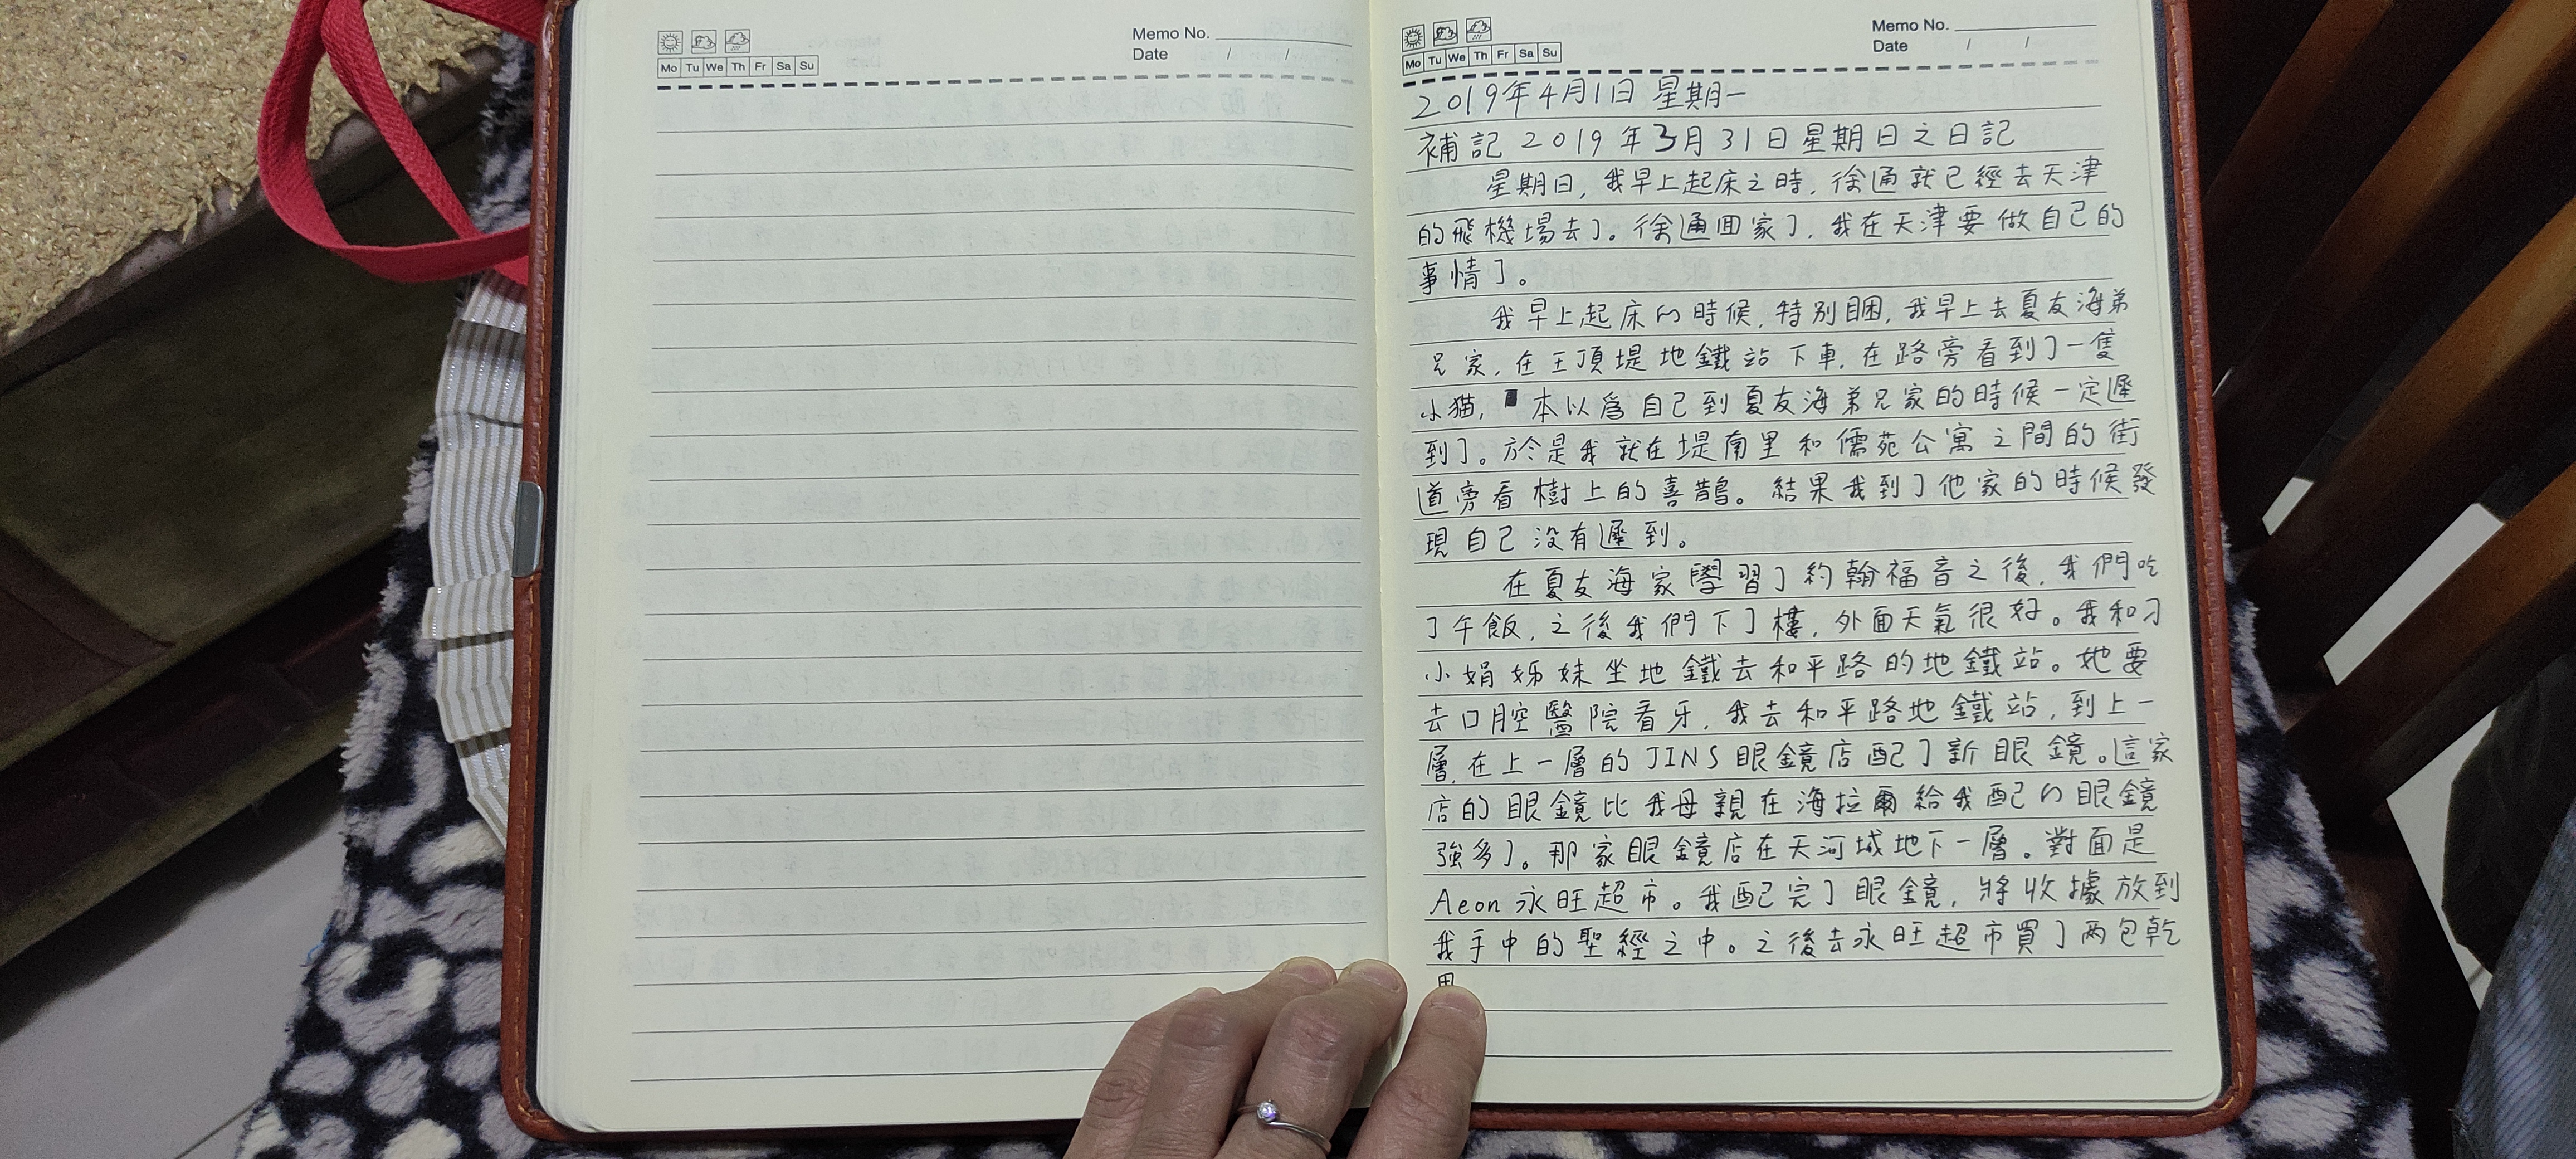 Memo No.
Mo Tu We Th Fr Sa Su
Date / /
Memo No.
Mo Tu We Th Fr Sa Su
Date / /
2019年4月1日 星期一
補記2019年3月31日星期日之日記
星期日，我早上起床之時，徐通就已經去天津
的飛機場去了。徐通回家了，我在天津要做自己的
事情了。
我早上起床的時候，特別睏，我早上去夏友海弟
兄家，在王頂堤地鐵站下車，在路旁看到了一隻
小猫，本以為自己到夏友海弟兄家的時候一定遲
到了。於是我就在堤南里和儒苑公寓之間的街
道旁看樹上的喜鵲。結果我到了他家的時候發
現自己没有遲到。
在夏友海家學習了約翰福音之後，我們吃
了午飯，之後我們下了樓，外面天氣很好。我和刁
小娟姊妹坐地鐵去和平路的地鐵站。她要
去口腔醫院看牙，我去和平路地鐵站，到上一
層，在上一層的JINS眼鏡店配了新眼鏡。這家
店的眼鏡比我母親在海拉爾給我配的眼鏡
強多了。那家眼鏡店在天河城地下一層。對面是
Aeon永旺超市。我配完了眼鏡，將收據放到
我手中的聖經之中。之後去永旺超市買了两包乾